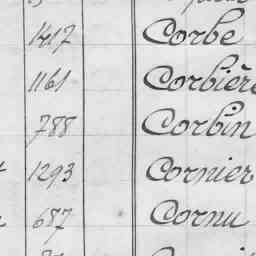 1417 Corbe
1161 Corbière
788 Corbin
1293 Cornier
687 Cornu